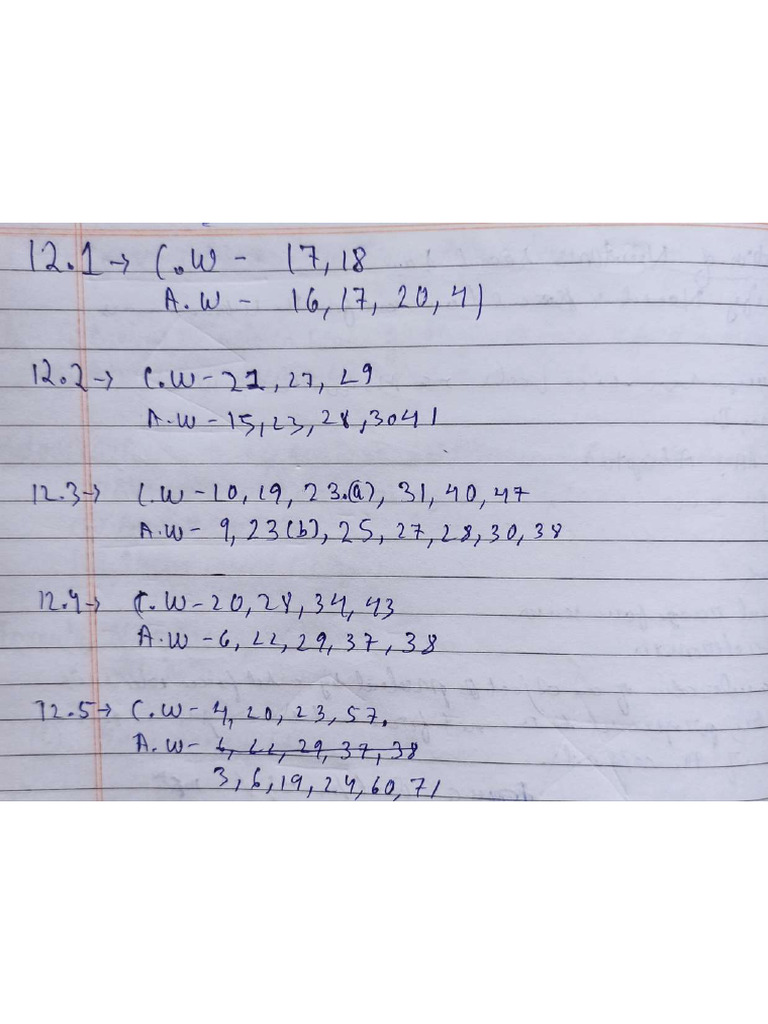 12.1 → C.W - 17, 18
A.W - 16, 17, 20, 41
12.2 → C.W - 21, 27, 29
A.W - 15, 23, 28, 3041
12.3 → C.W - 10, 19, 23.(a), 31, 40, 47
A.W - 9, 23(b), 25, 27, 28, 30, 38
12.4 → C.W - 20, 28, 34, 43
A.W - 6, 22, 29, 37, 38
12.5 → C.W - 4, 20, 23, 57.
A.W - 6, 22, 29, 37, 38
3, 6, 19, 24, 60, 71